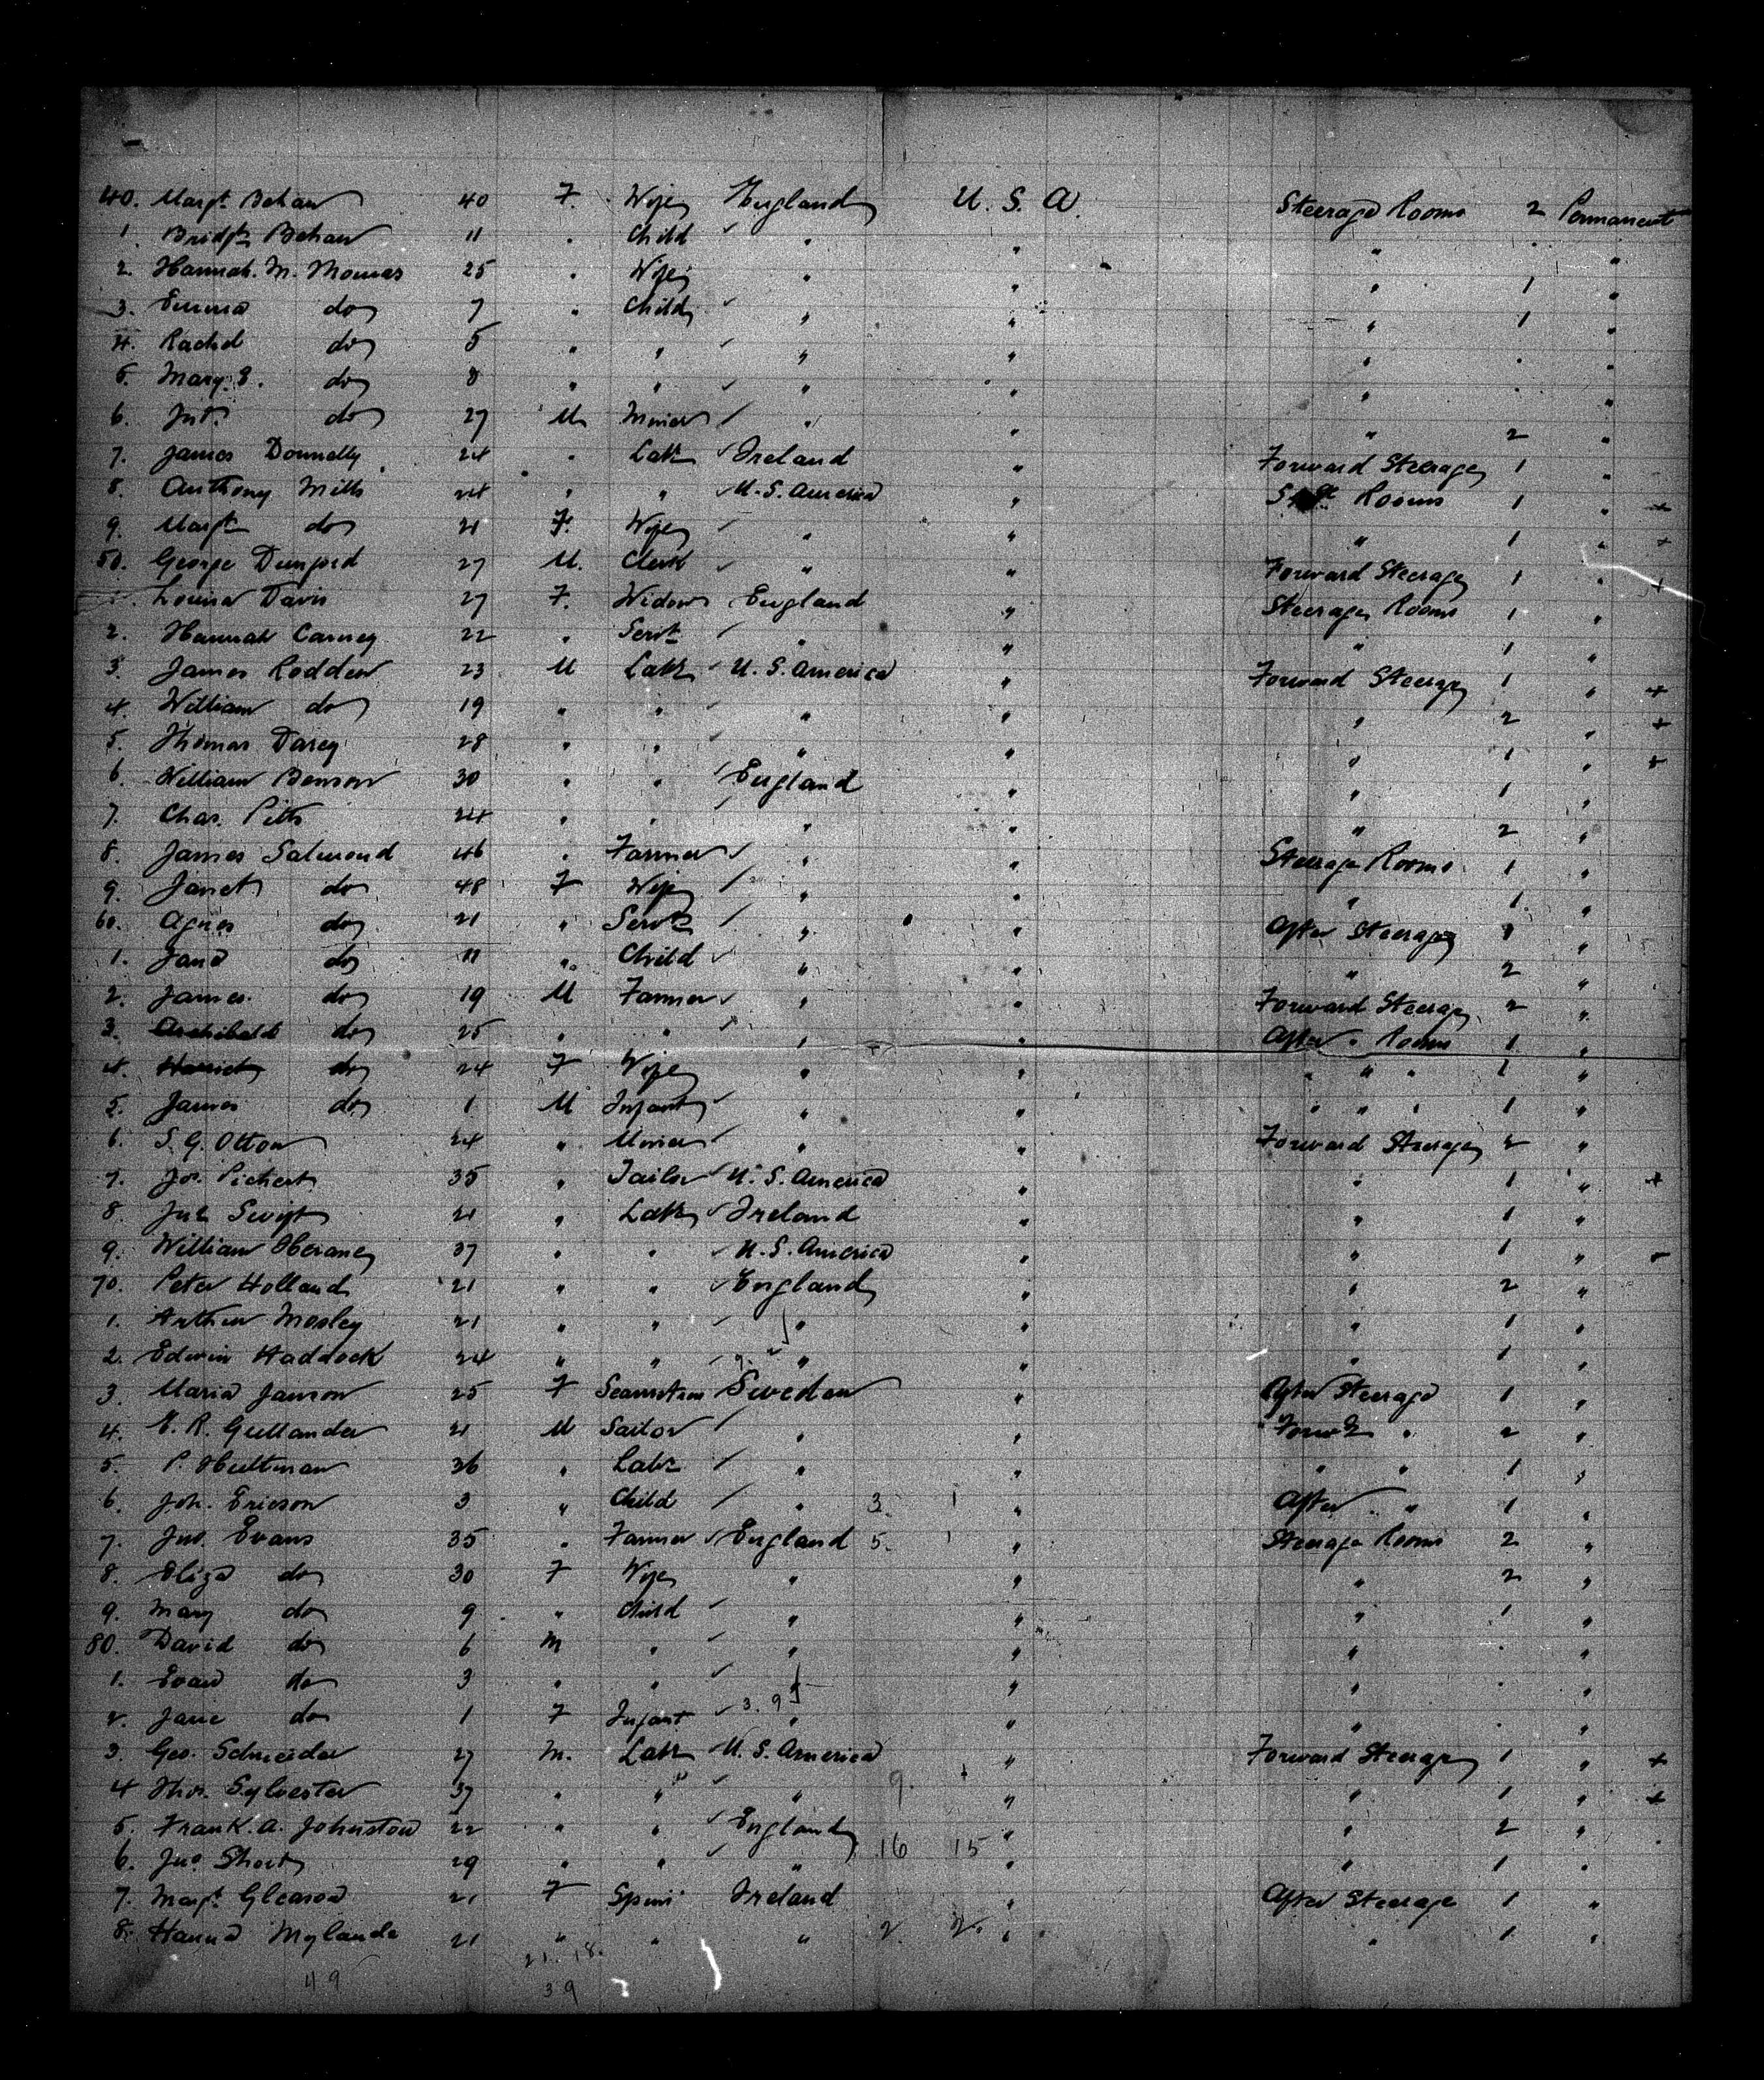 40. Margt Behan 40 F. Wife England U. S. A. Steerage Rooms 2 Permanent
1. Bridgt Behan 11 " Child " " " " "
2. Hannah. M. Thomas 25 " Wife " " " 1 "
3. Emma do 7 " Child " " " 1 "
4. Rachel do 5 " " " " " " "
5. Mary. E. do 8 " " " " " " "
6. Jno. do 27 M Miner " " " 2 "
7. James Donnelly 24 " Labr Ireland " Forward Steerage 1 "
8. Anthony Mills 24 " " U. S. America " Rooms 1 " +
9. Margt do 21 F. Wife " " " 1 " +
50. George Dunford 27 M. Clerk " " Forward Steerage 1 " +
1. Louisa Davis 27 F. Widow England " Steerage Rooms 1 "
2. Hannah Carney 22 " Servt " " " 1 "
3. James Rodden 23 M Labr U. S. America " Forward Steerage 1 " +
4. William do 19 " " " " " 2 " +
5. Thomas Darcy 28 " " " " " 1 " +
6. William Benson 30 " " England " " 1 "
7. Chas. Pitts 24 " " " " " 2 "
8. James Salmond 46 " Farmer " " Steerage Rooms 1 "
9. Janet do 48 F Wife " " " 1 "
60. Agnes do 21 " Servt " " After Steerage 1 "
1. Jane do 11 " Child " " " 2 "
2. James do 19 M Farmer " " Forward Steerage 2 "
3. Archibald do 25 " " " " After " Rooms 1 "
4. Harriet do 24 F Wife " " " " " 1 "
5. James do 1 M Infant " " " " " 1 "
6. S. G. Otton 24 " Miner " " Forward Steerage 2 "
7. Jos. Pichert 35 " Tailor U. S. America " " 1 " +
8. Jno Swift 21 " Labr Ireland " " 1 "
9. William 37 " " U. S. America " " 1 "
70. Peter Holland 21 " " England " " 2 "
1. Arthur Mosley 21 " " " " " 1 "
2. Edwin Haddock 24 " " " " " 1 "
3. Maria Janson 25 F Seamstress Sweden " After Steerage 1 "
4. E. R. Gullander 21 M Sailor " " Forwd " 2 "
5. P. Hultman 36 " Labr " " " " 1 "
6. Joh. Ericson 3 " Child " 3 1 " After " 1 "
7. Jno. Evans 35 " Farmer England 5. 1 " Steerage Rooms 2 "
8. Eliza do 30 F Wife " " " 2 "
9. Mary do 9 " Child " " " 1 "
80. David do 6 M " " " " " "
1. Evan do 3 " " " " " " "
2. Jane do 1 F Infant 3. 9 " " " " "
3. Geo. Schneider 27 M. Labr U. S. America " Forward Steerage 1 " +
4 Thos. Sylvester 37 " " " 9. 1 " " 1 " +
5. Frank. A. Johnston 22 " " England " " 2 "
6. Jno. Short 29 " " " 16 15 " " 1 "
7. Margt. Gleason 21 F Spinr Ireland " After Steerage 1 "
8. Hanna Mylande 21 " " " 2. 2. " " 1 "
21. 18.
49 39